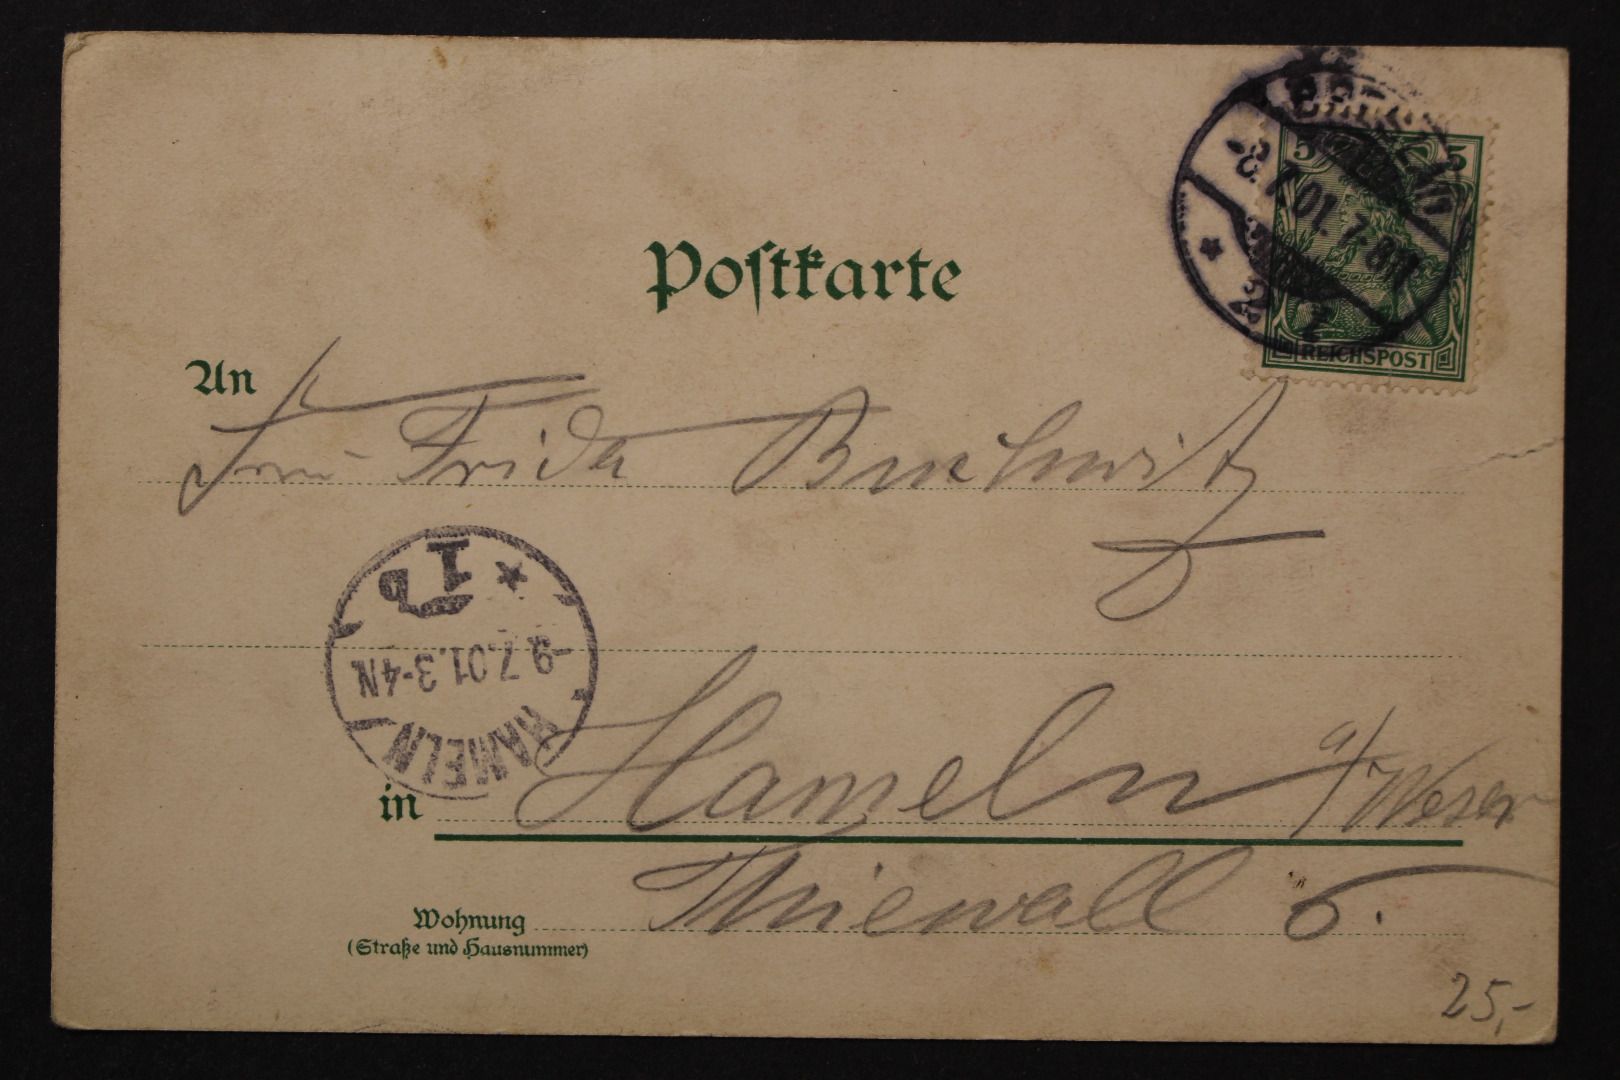 5 5
-8.7.01.7-8N
REICHSPOST
Postkarte
An
Frau Frida
1b
-9.7.01.3-4N
HAMELN
in Hameln a/Weser
Wohnung Thiewall 6.
(Straße und Hausnummer)
25,-